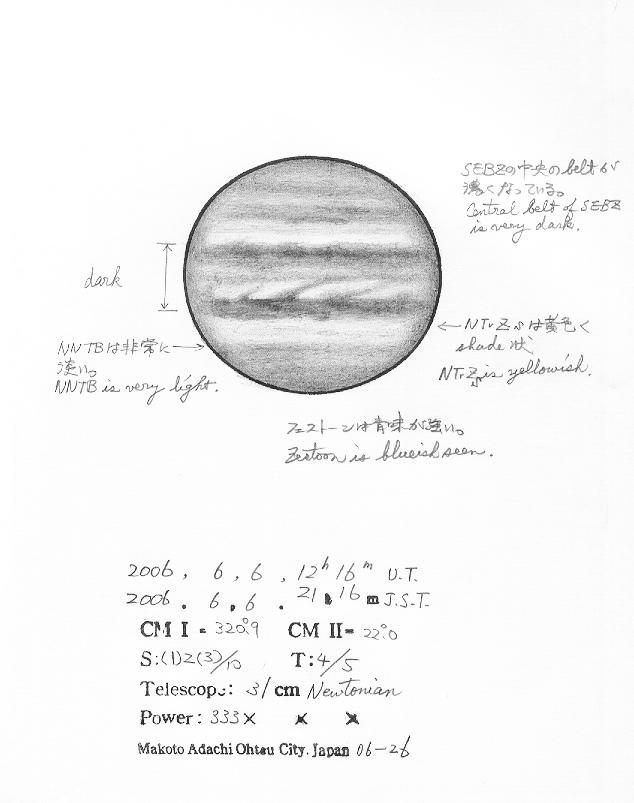 SEBZの中央のbeltが
濃くなっている。
Central belt of SEBZ
is very dark.
dark
NTrZは黄色く
shade状
NTrZ is yellowish.
NNTBは非常に
淡い。
NNTB is very light.
フェストーンは青味が強い。
Festoon is blueish seen.
2006, 6, 6, 12h 16m U.T.
2006. 6. 6. 21 16m J.S.T.
CM I = 320.°9 CM II = 22.°0
S:(1)2(3)/10 T:4/5
Telescope: 31 cm Newtonian
Power: 333× × ×
Makoto Adachi Ohtsu City. Japan 06-26